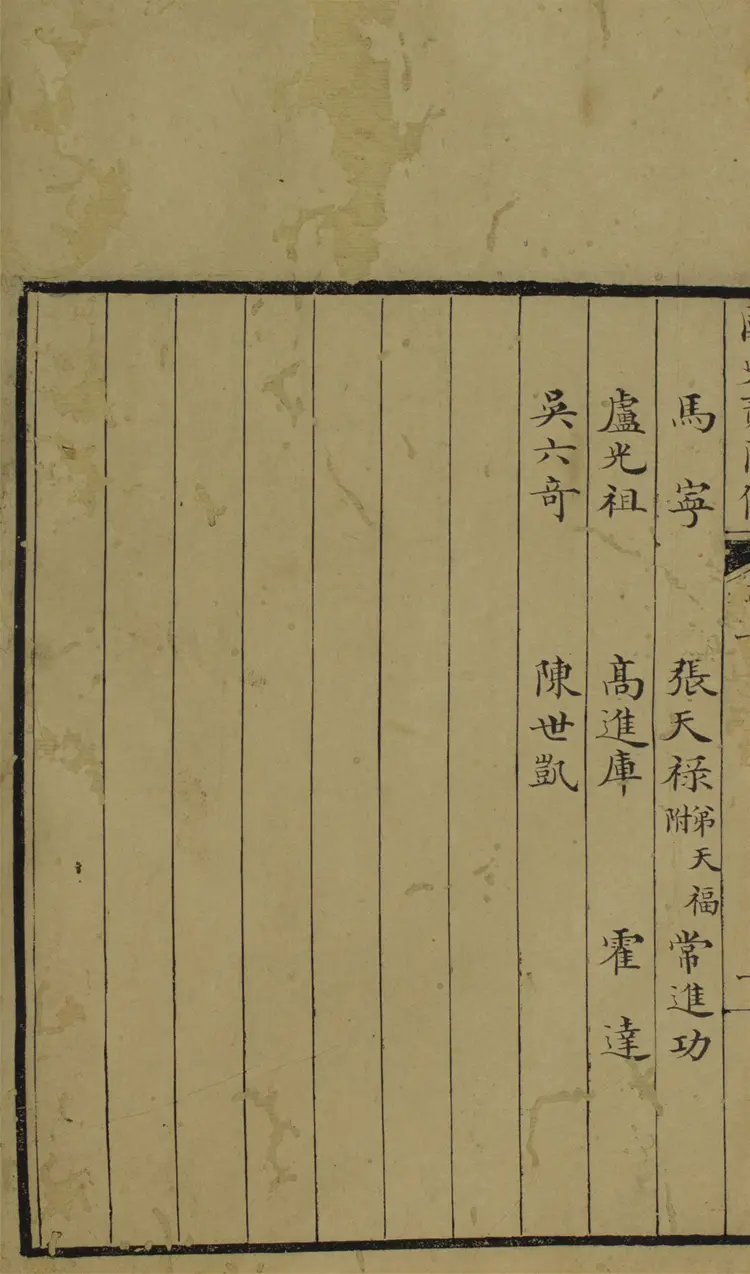 馬寧 張天禄弟天福附 常進功
盧光祖 髙進庫 霍達
吳六奇 陳世凱